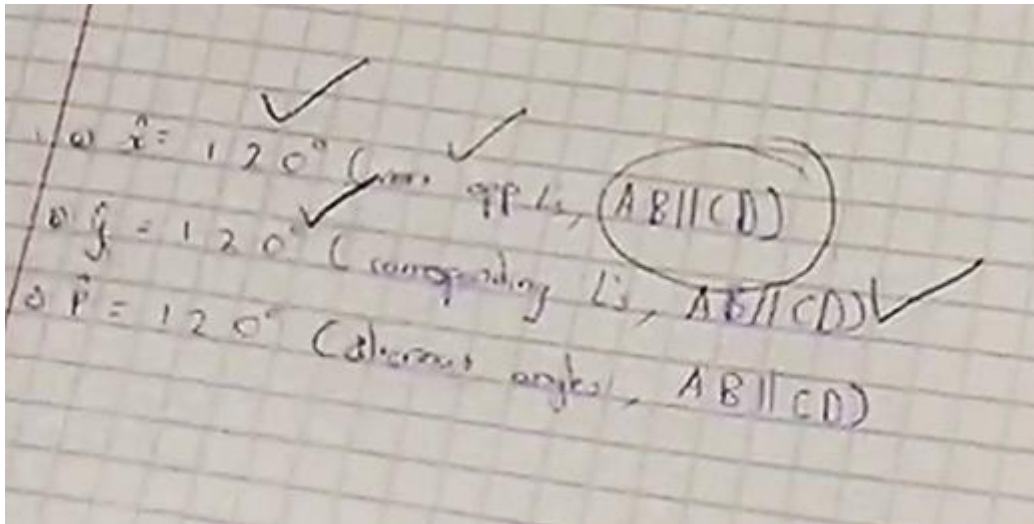 a) x̂ = 120° (vert. opp ∠s, AB||CD)
b) ŷ = 120° (corresponding ∠'s, AB||CD)
c) p̂ = 120° (alternate angles, AB||CD)